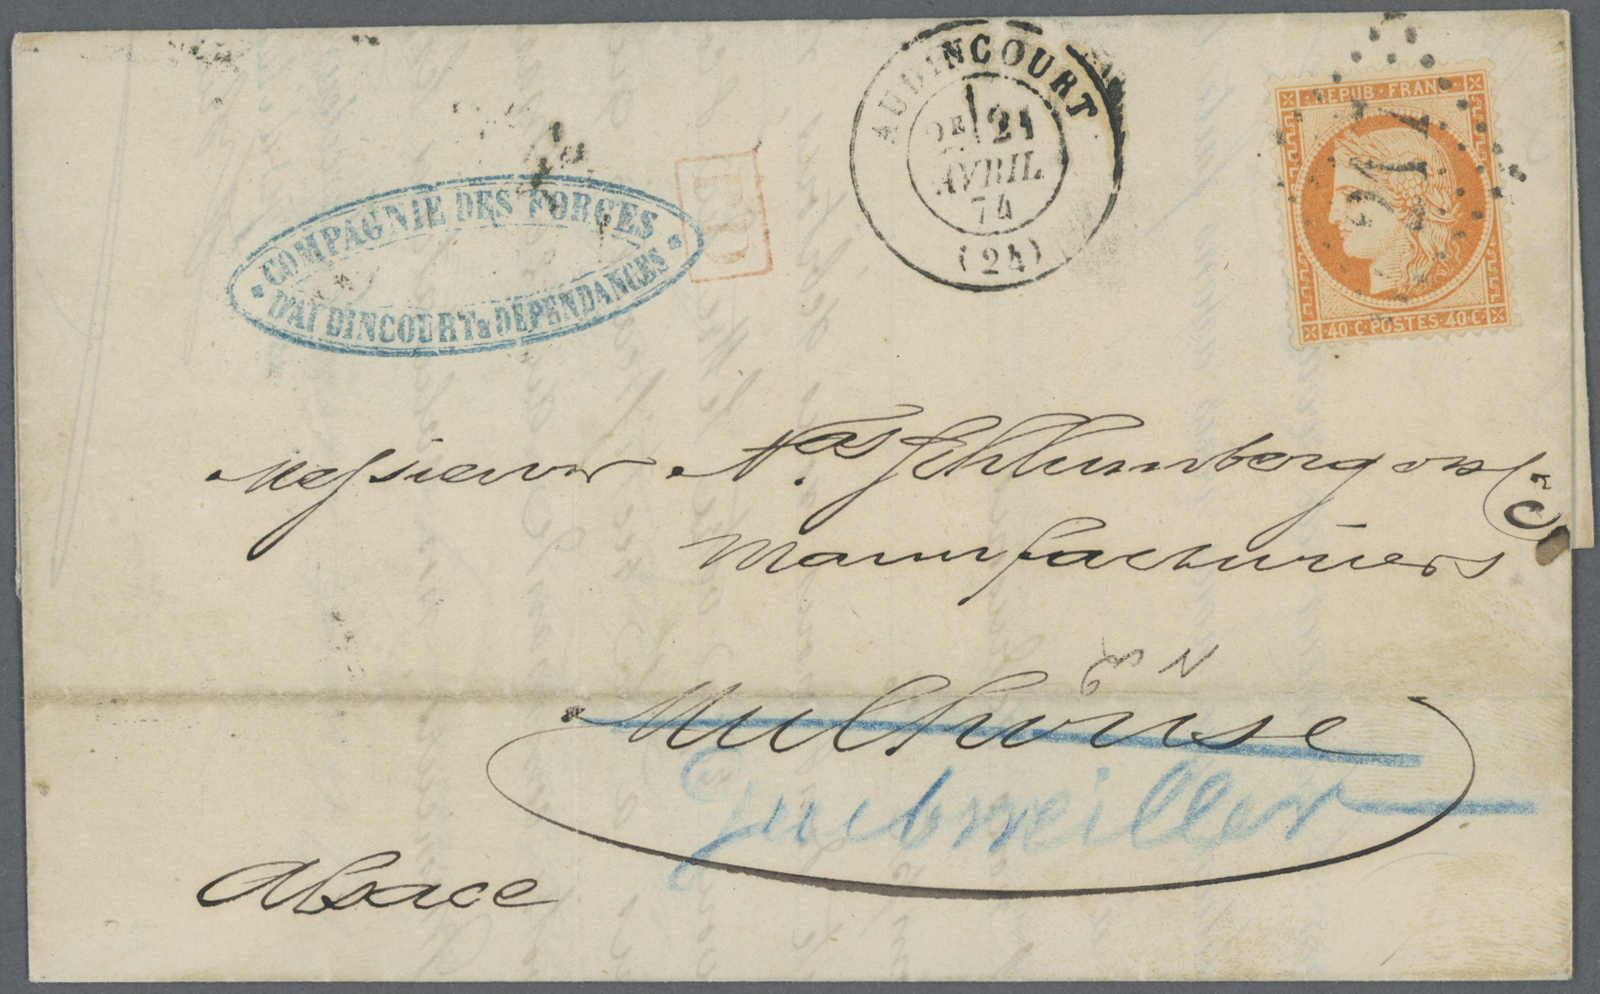 COMPAGNIE DES FORGES
D'AUDINCOURT & DÉPENDANCES
PD
AUDINCOURT
2E 21
AVRIL
74
(24)
REPUB·FRANC
40·C·POSTES·40·C
Messieurs Nas Schlumberger & Cie
Manufacturiers
Mulhouse
Guebwiller
Alsace